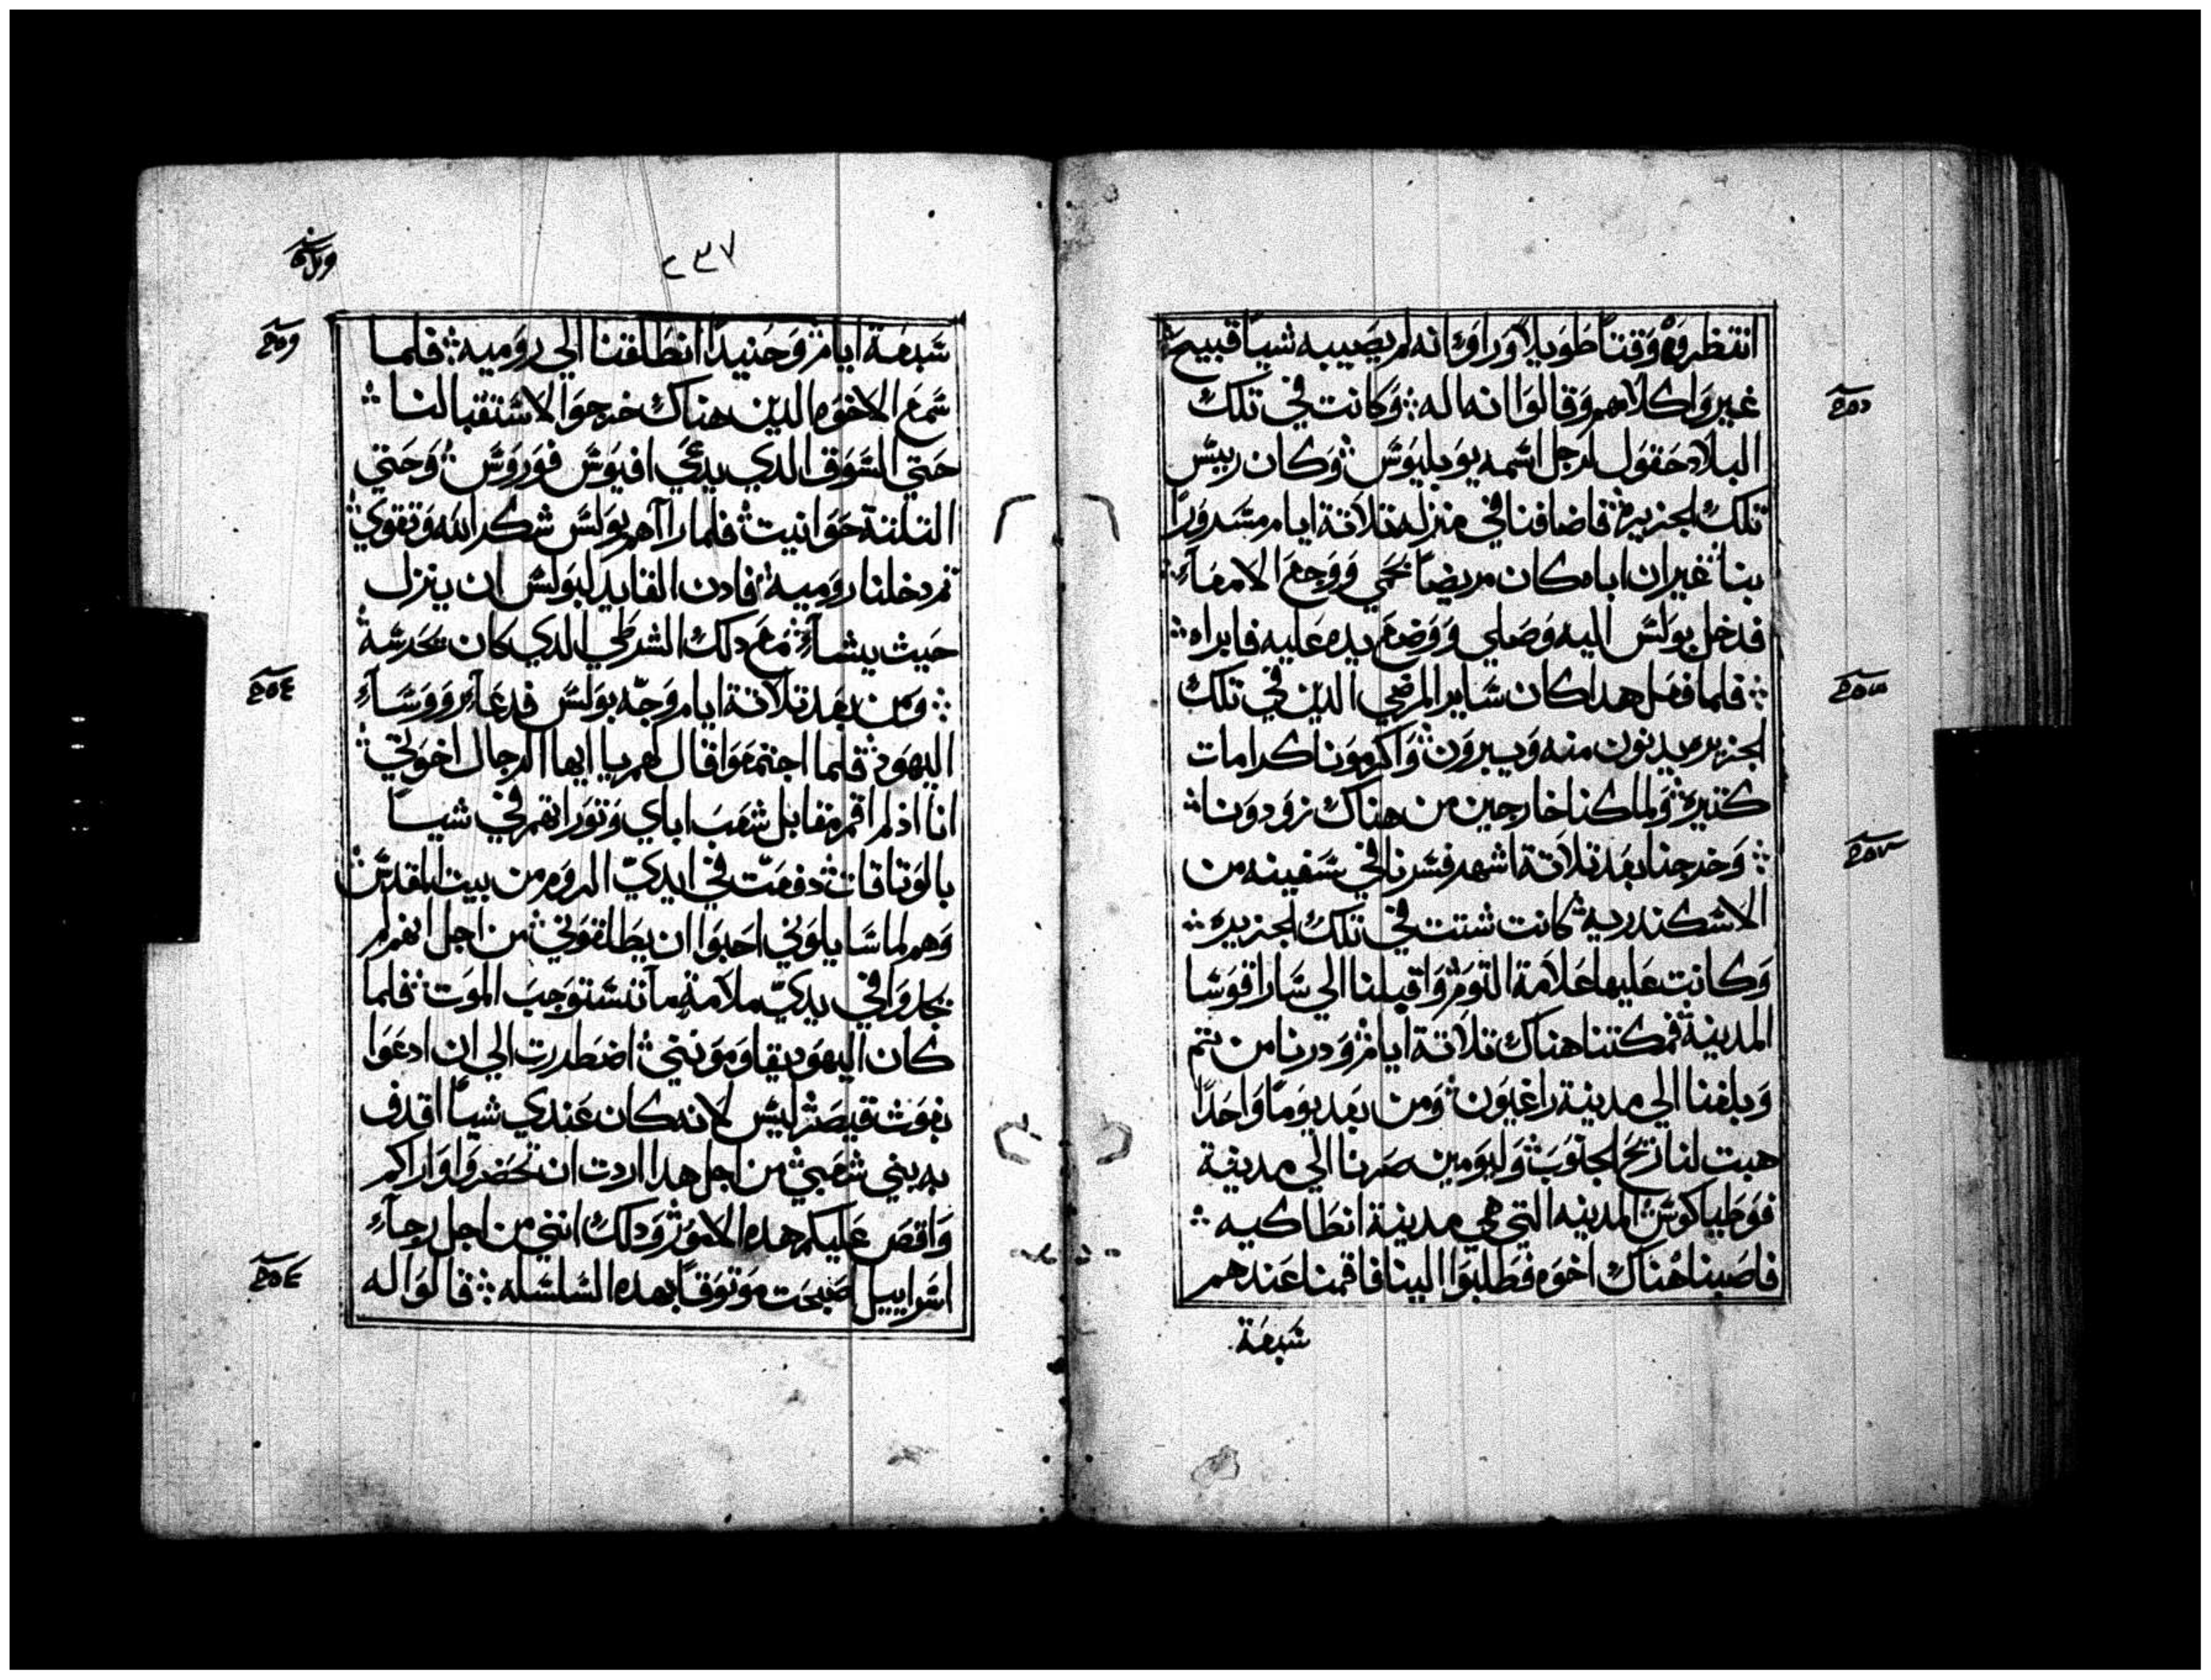 انتظروه وقتا طويلا وراوا انه لم يصيبه شيا قبيح
غيروا كلامهم وقالوا انه اله وكانت في تلك
البلاد حقول لرجل اسمه يوبليوس وكان رييس
تلك الجزيرة فاضافنا في منزله تلاتة ايام مسرورا
بنا غير ان اباه كان مريضا بحمي ووجع الامعاء
فدخل بولس اليه وصلي ووضع يده عليه فابراه
فلما فعل هدا كان ساير المرضي الدين في تلك
الجزيره يدنون منه ويبرون واكرمونا كرامات
كتيرة ولما كنا خارجين من هناك زودونا
وخرجنا بعد تلاتة اشهر فسرنا في سفينه من
الاسكندريه كانت شتت في تلك الجزيره
وكانت عليها علامة التوم واقبلنا الي ساراقوسا
المدينة فمكتنا هناك تلاتة ايام ودرنا من تم
وبلغنا الي مدينة راغيون ومن بعد يوما واحدا
هبت لنا ريح الجنوب وليومين صرنا الي مدينة
فوطياكوس المدينه التي هي مدينة انطاكيه
فاصبنا هناك اخوه فطلبوا الينا فاقمنا عندهم
سبعة
٢٣٧
سبعة ايام وحنيدا انطلقنا الي روميه فلما
سمع الاخوه الدين هناك خرجوا لاستقبالنا
حتي السوق الدي يدعي افيوس فوروس وحتي
التلتة حوانيت فلما راآهم بولس شكر الله وتقوي
تم دخلنا روميه فادن القايد لبولس ان ينزل
حيث يشاء مع دلك الشرطي الدي كان يحرسه
ومن بعد تلاتة ايام وجه بولس فدعاء رووساء
اليهود فلما اجتمعوا قال لهم يا ايها الرجال اخوتي
انا اذ لم اقم مقابل شعب اباي وتوراتهم في شيا
بالوتاقات دفعت في ايدي الروم من بيت المقدس
وهم لما سايلوني احبوا ان يطلقوني من اجل انهم لم
يجدوا في يدي ملامة ما تستوجب الموت فلما
كان اليهود يقاومونني اضطررت الي ان ادعوا
بغوت قيصر ليس لانه كان عندي شيا اقدف
به بني شعبي من اجل هدا اردت ان تحضروا واراكم
واقص عليكم هده الامور ودلك انني من اجل رجاء
اسراييل اصبحت موتوقا بهده السلسله قالوا له